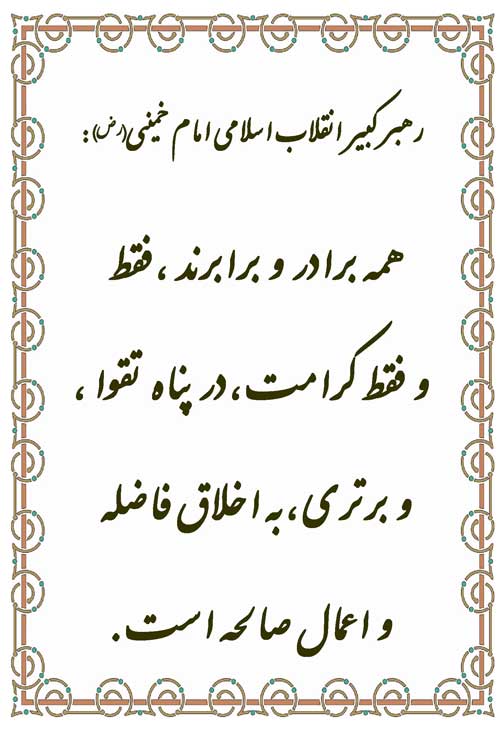 رهبر کبیر انقلاب اسلامی امام خمینی (رض) :
همه برادر و برابرند ، فقط
و فقط کرامت ، در پناه تقوا ،
و برتری ، به اخلاق فاضله
و اعمال صالحه است .